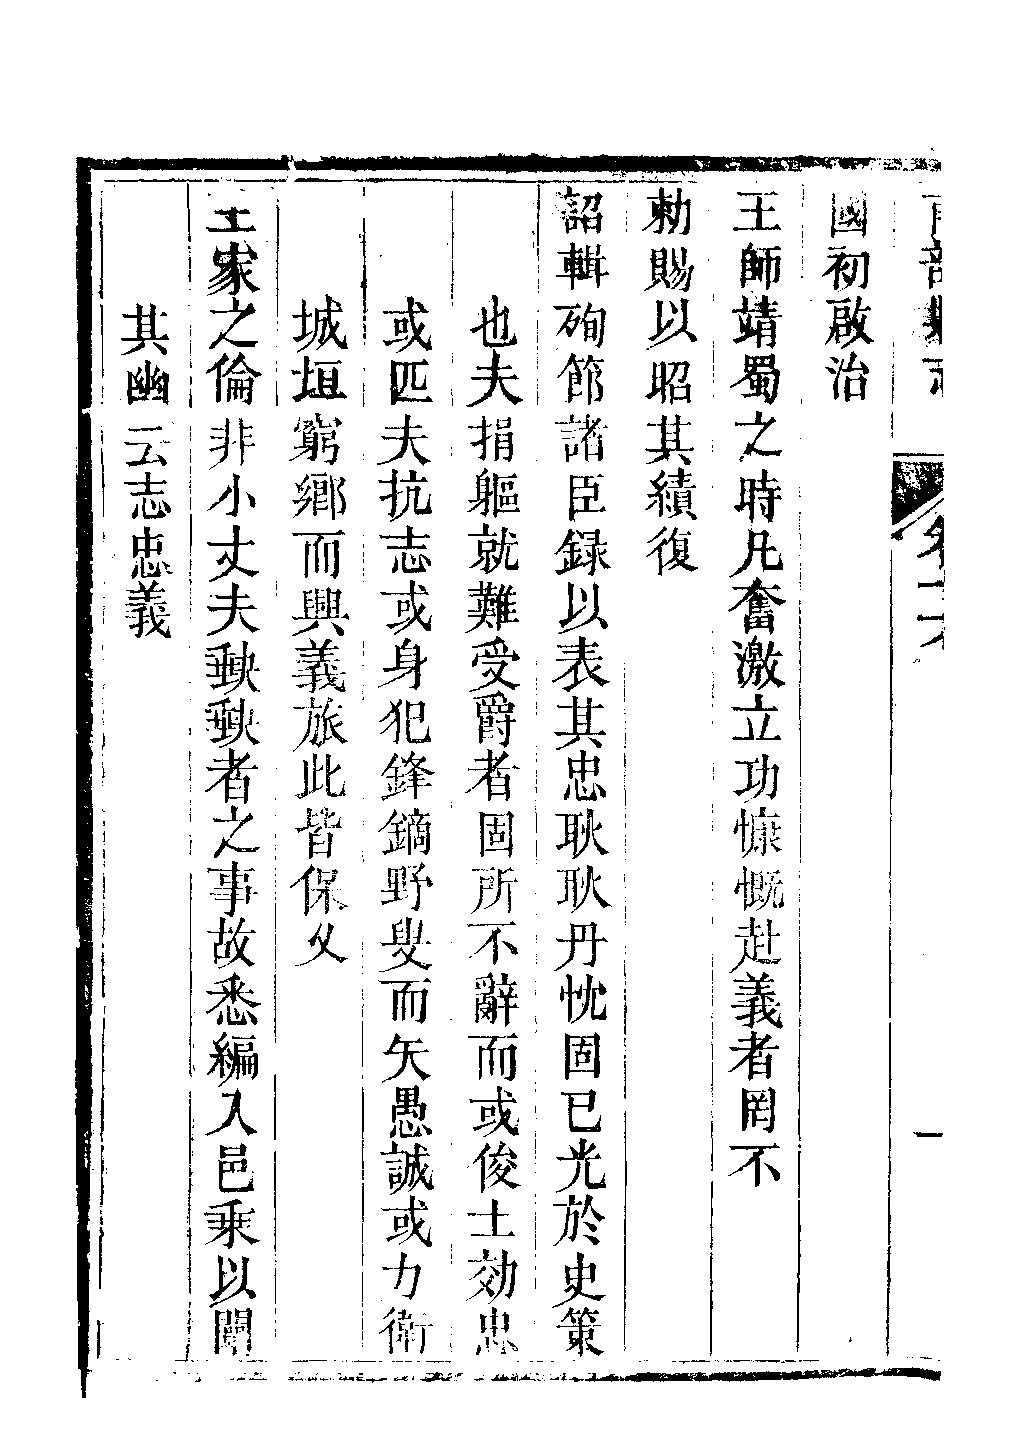 南部縣志
卷十六
一
國初啟治
王師靖蜀之時凡奮激立功慷慨赴義者罔不
勅賜以昭其績復
詔輯殉節諸臣録以表其忠耿耿丹忱固已光於史策
也夫捐軀就難受爵者固所不辭而或俊士効忠
或匹夫抗志或身犯鋒鏑野叟而矢愚誠或力衛
城垣窮鄉而興義旅此皆保乂
王家之倫非小丈夫䩕䩕者之事故悉編入邑乘以闡
其幽云志忠義